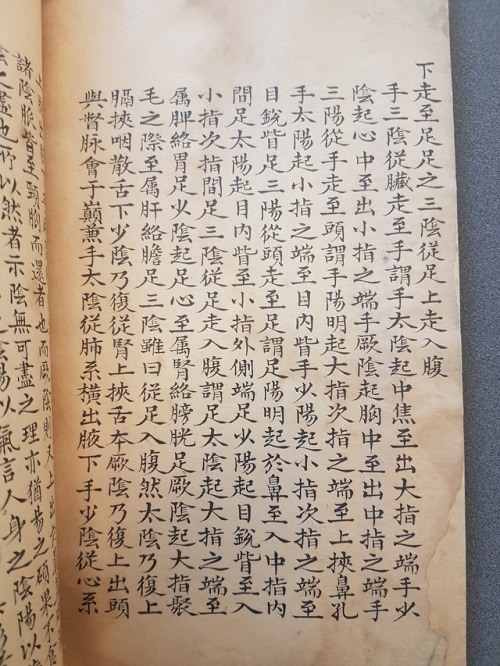 下走至足足之三陰從足上走入腹
手三陰從臟走至手謂手太陰起中焦至出大指之端手少
陰起心中至出小指之端手厥陰起胸中至出中指之端手
三陽從手走至頭謂手陽明起大指次指之端至上挾鼻孔
手太陽起小指之端至目内眥手少陽起小指次指之端至
目銳眥足三陽從頭走至足謂足陽明起於鼻至入中指内
間足太陽起目内眥至小指外側端足少陽起目銳眥至入
小指次指間足三陰從足走入腹謂足太陰起大指之端至
属脾絡胃足少陰起足心至属腎絡膀胱足厥陰起大指聚
毛之際至属肝絡膽足三陰雖曰從足入腹然太陰乃復上
膈挾咽散舌下少陰乃復從腎上挾舌本厥陰乃復上出頭
與督脉會于巔兼手太陰從肺系橫出腋下手少陰從心系
諸陰脉皆至頸胸而還者也而厥陰則又上出
盡也所以然者示陰無可盡之理亦猶昜之碩果不食
陰陽以氣言人身之陰陽以